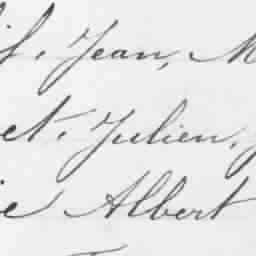 if, Jean, M
et, Julien, J
ie Albert